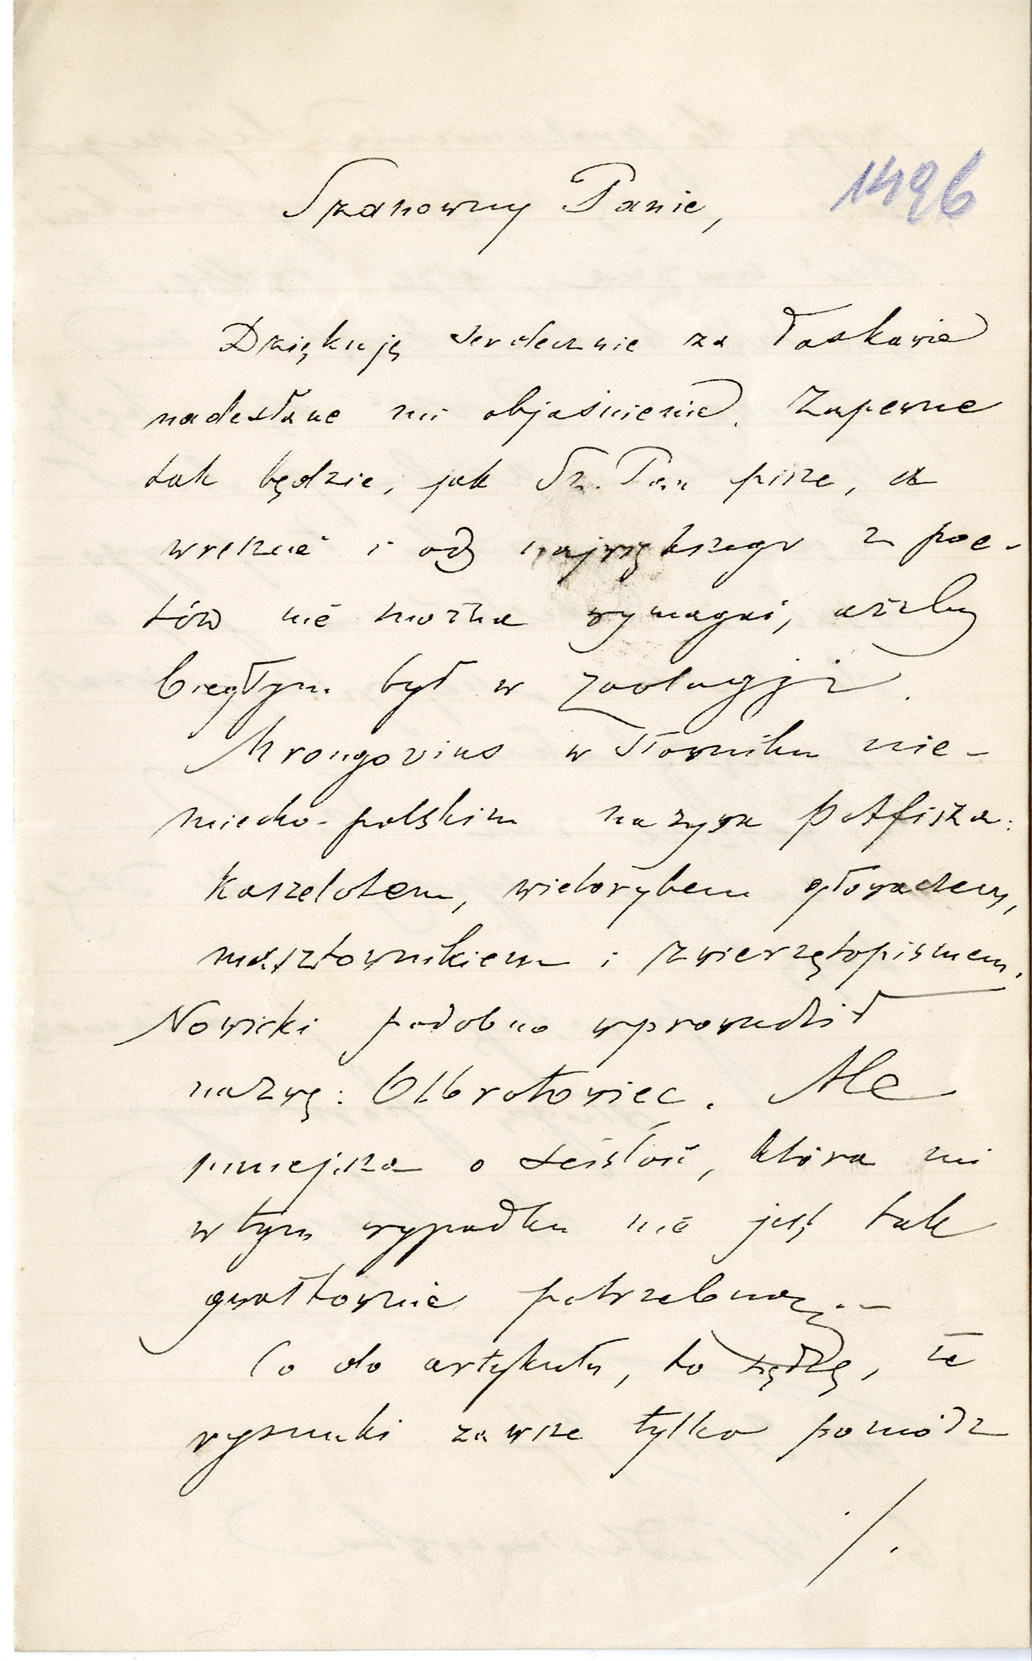 1496
Szanowny Panie,
Dziękuję serdecznie za łaskawie
nadesłane mi objaśnienie. Zapewne
tak będzie, jak Sz. Pan pisze, a
wreszcie i od największego z poe-
tów nie można wymagać, ażeby
biegłym był w zoologji.
Mrongovius w Słowniku nie-
miecko-polskim nazywa Potfisza:
Kaszelotem, wielorybem głowaczem,
masztownikiem i zwierzętopismem.
Nowicki podobno wprowadził
nazwę: Olbrotowiec. Ale
mniejsza o ścisłość, która mi
w tym wypadku nie jest tak
gwałtownie potrzebną. –
Co do artykułu, to sądzę, że
rysunki zawsze tylko pomódz
./.